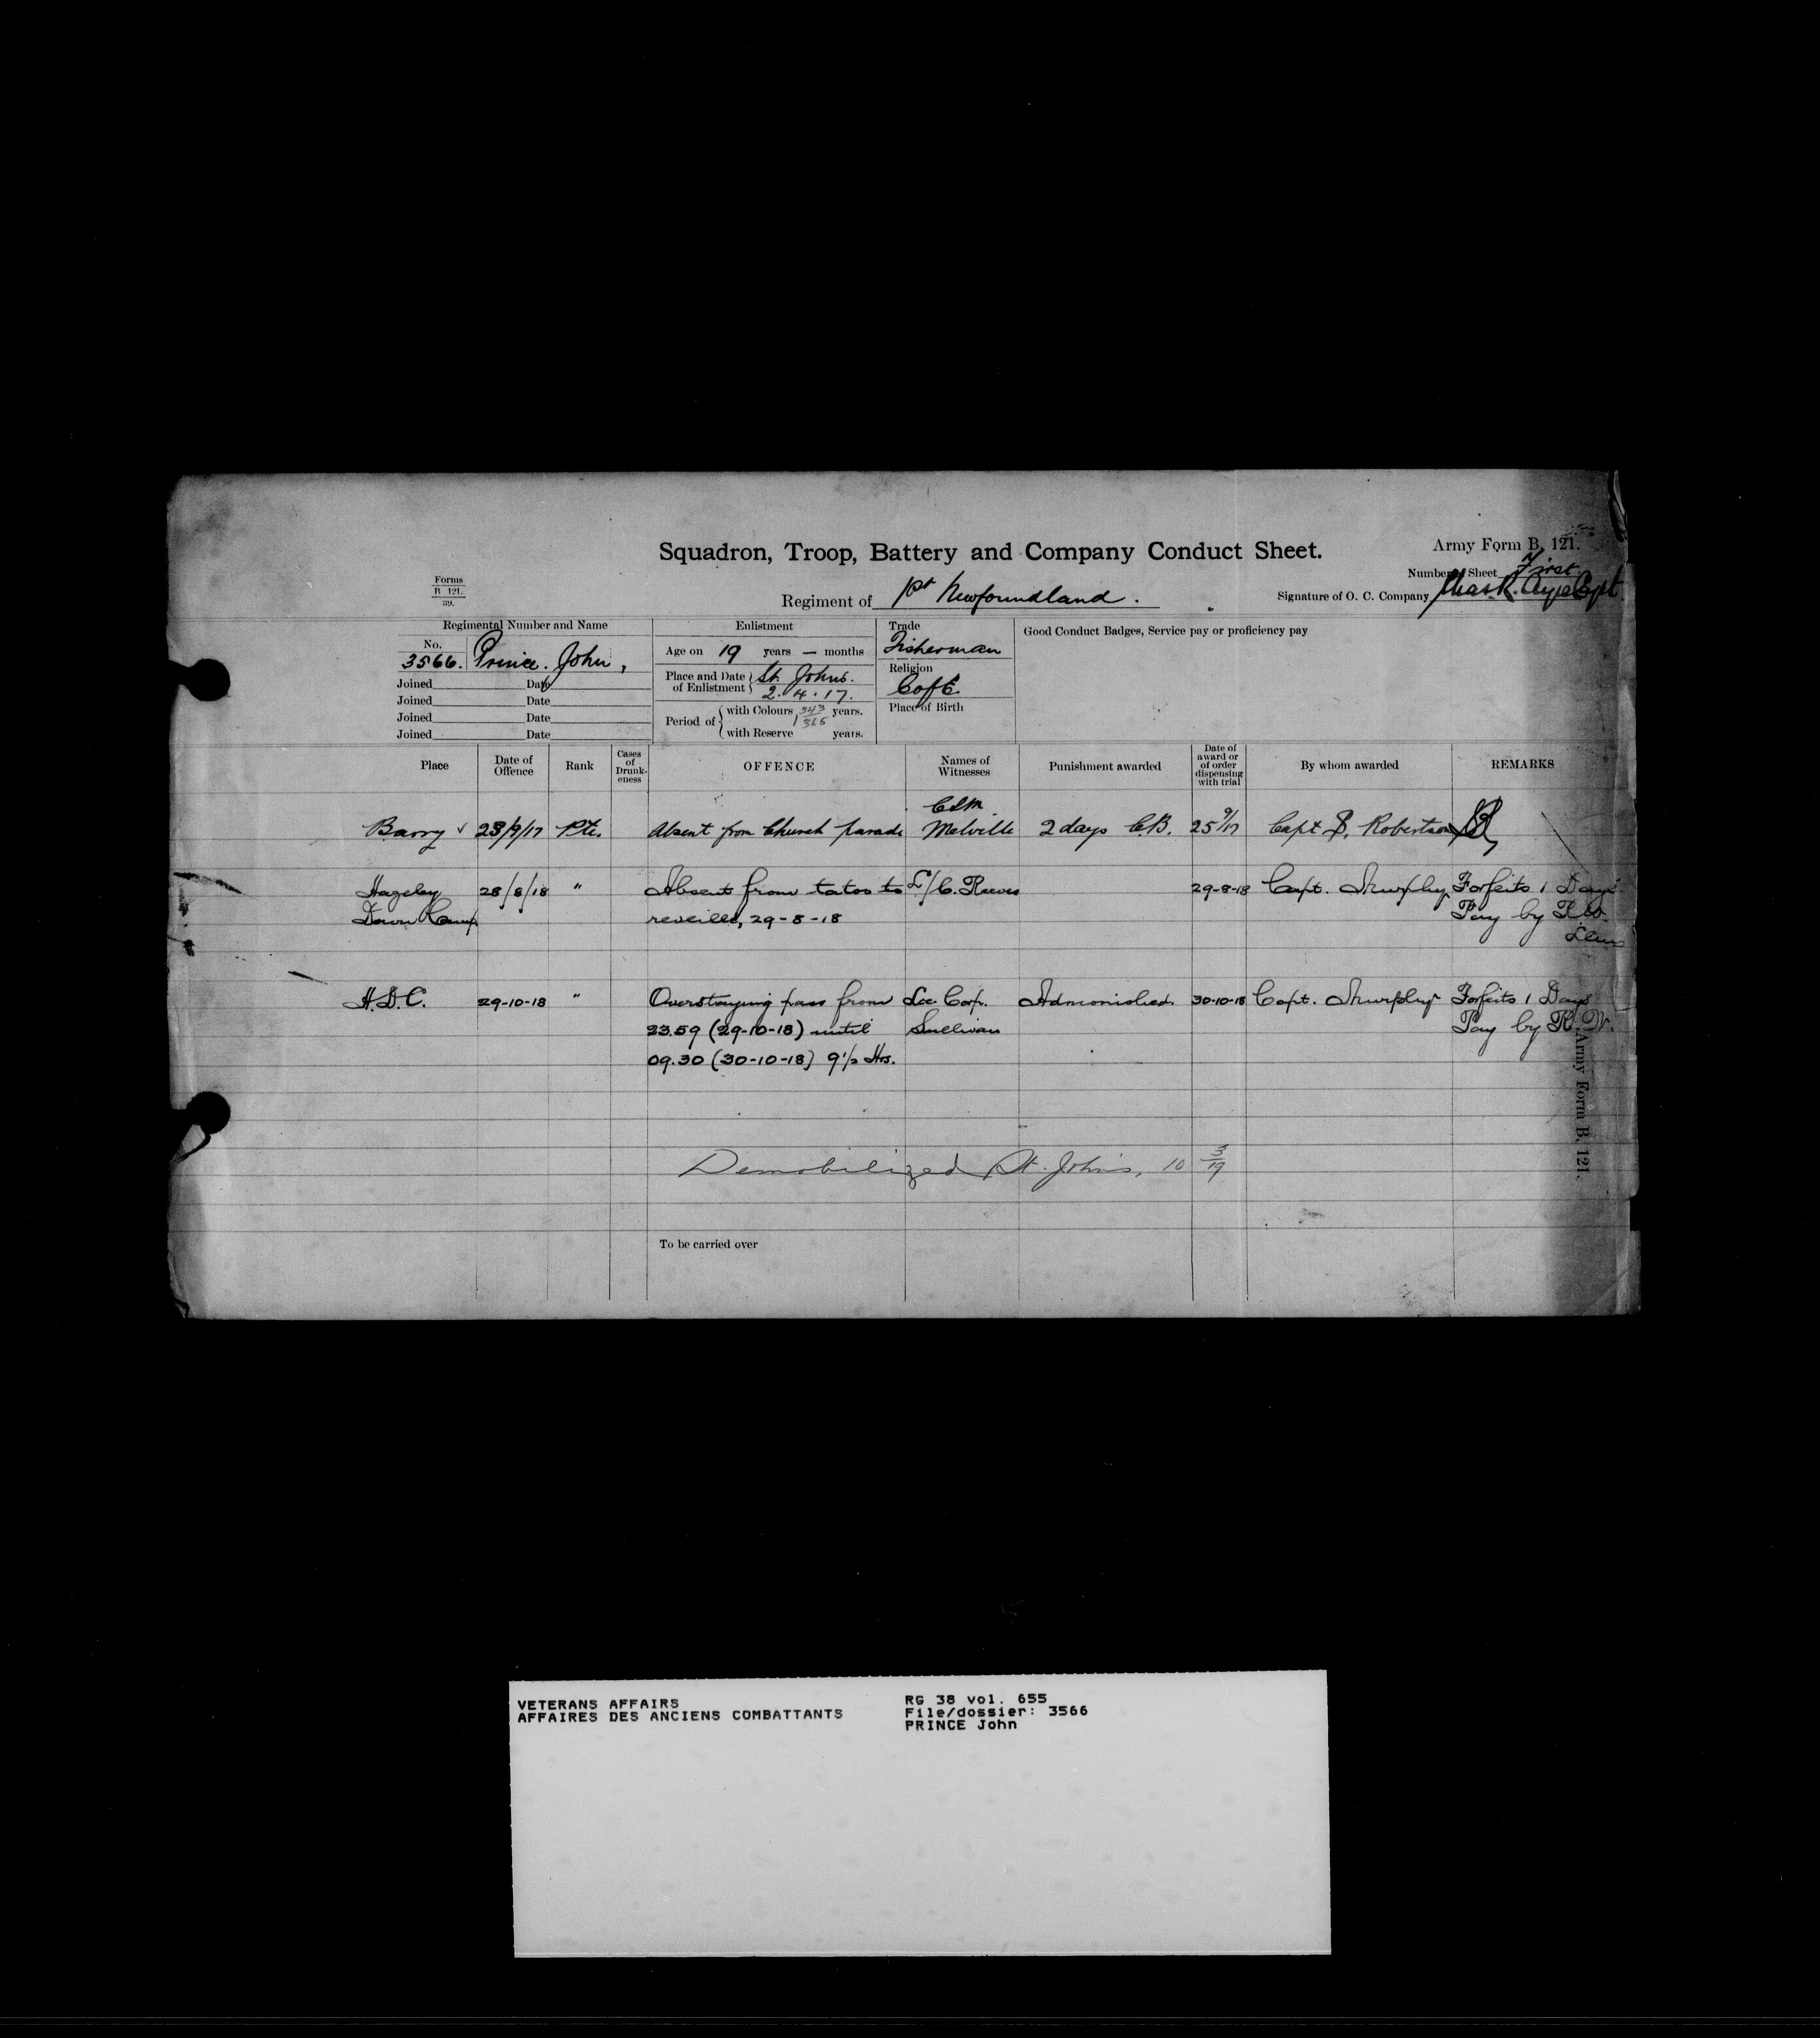 Squadron, Troop, Battery and Company Conduct Sheet.
Army Form B. 121.
Forms
B 121.
39.
Number of Sheet First
Regiment of 1st Newfoundland.
Signature of O. C. Company Chas. R. Ayre Capt.
Regimental Number and Name
Enlistment
Trade
Good Conduct Badges, Service pay or proficiency pay
No.
3566. Prince. John,
Age on 19 years — months
Fisherman
Religion
C of E.
Place of Birth
Joined Date
Joined Date
Joined Date
Joined Date
Place and Date of Enlistment St. Johns.
2.4.17.
Period of with Colours 1 343/365 years.
with Reserve years.
Place
Date of Offence
Rank
Cases of Drunkeness
OFFENCE
Names of Witnesses
Punishment awarded
Date of award or of order dispensing with trial
By whom awarded
REMARKS
C.S.M.
Barry 23/9/17 Pte. Absent from Church parade Melville 2 days C.B. 25 9/17 Capt Robertson
Hazeley 28/8/18 " Absent from tatoo to L/C. Reeves 29-8-18 Capt. Murphy Forfeits 1 Days
Down Camp reveille, 29-8-18 Pay by R.W.
H.D.C. 29-10-18 " Overstaying pass from Lce Corp. Admonished. 30-10-18 Capt. Murphy Forfeits 1 Days
23.59 (29-10-18) until Sullivan Pay by R.W.
09.30 (30-10-18) 9½ Hrs.
Army Form B. 121.
Demobilized St. John's, 10 3/19
To be carried over
VETERANS AFFAIRS
AFFAIRES DES ANCIENS COMBATTANTS
RG 38 vol. 655
File/dossier: 3566
PRINCE John